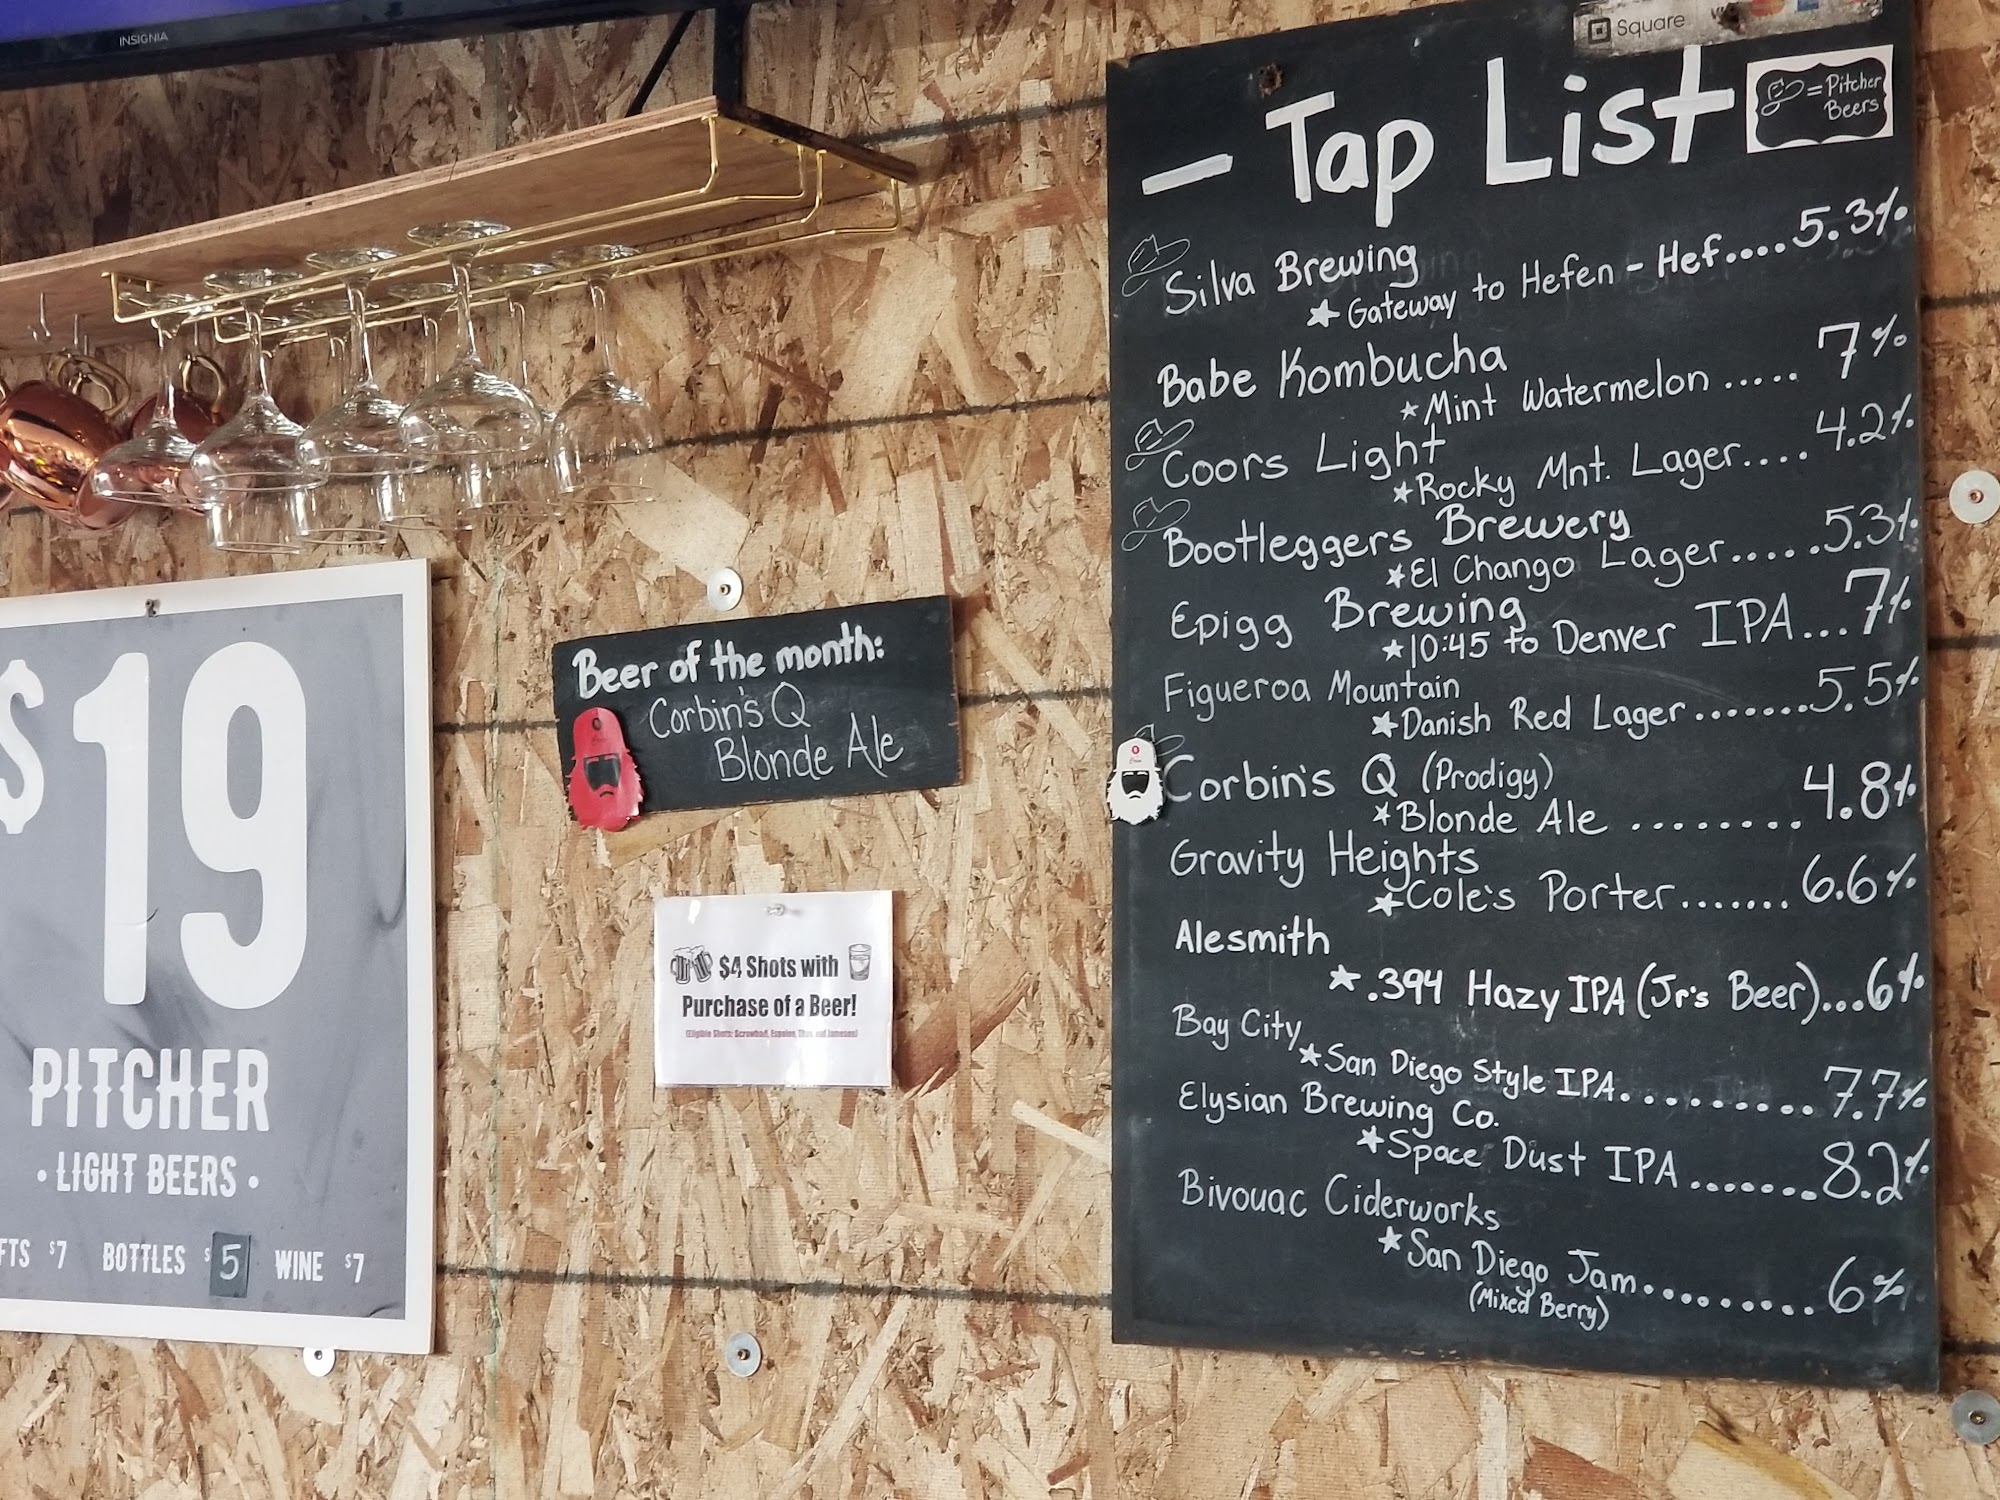 INSIGNIA
$19
PITCHER
• LIGHT BEERS •
FTS $7 BOTTLES $5 WINE $7
Beer of the month:
Corbin's Q
Blonde Ale
$4 Shots with
Purchase of a Beer!
Square
- Tap List
= Pitcher
Beers
Silva Brewing
★ Gateway to Hefen - Hef....5.3%
Babe Kombucha
★ Mint Watermelon ..... 7%
Coors Light
★ Rocky Mnt. Lager.... 4.2%
Bootleggers Brewery
★ El Chango Lager.....5.3%
Epigg Brewing
★ 10:45 to Denver IPA...7%
Figueroa Mountain
★ Danish Red Lager.......5.5%
Corbin's Q (Prodigy)
★ Blonde Ale ........4.8%
Gravity Heights
★ Cole's Porter....... 6.6%
Alesmith
★ .394 Hazy IPA (Jr's Beer)...6%
Bay City
★ San Diego Style IPA.......... 7.7%
Elysian Brewing Co.
★ Space Dust IPA .......8.2%
Bivouac Ciderworks
★ San Diego Jam......... 6%
(Mixed Berry)